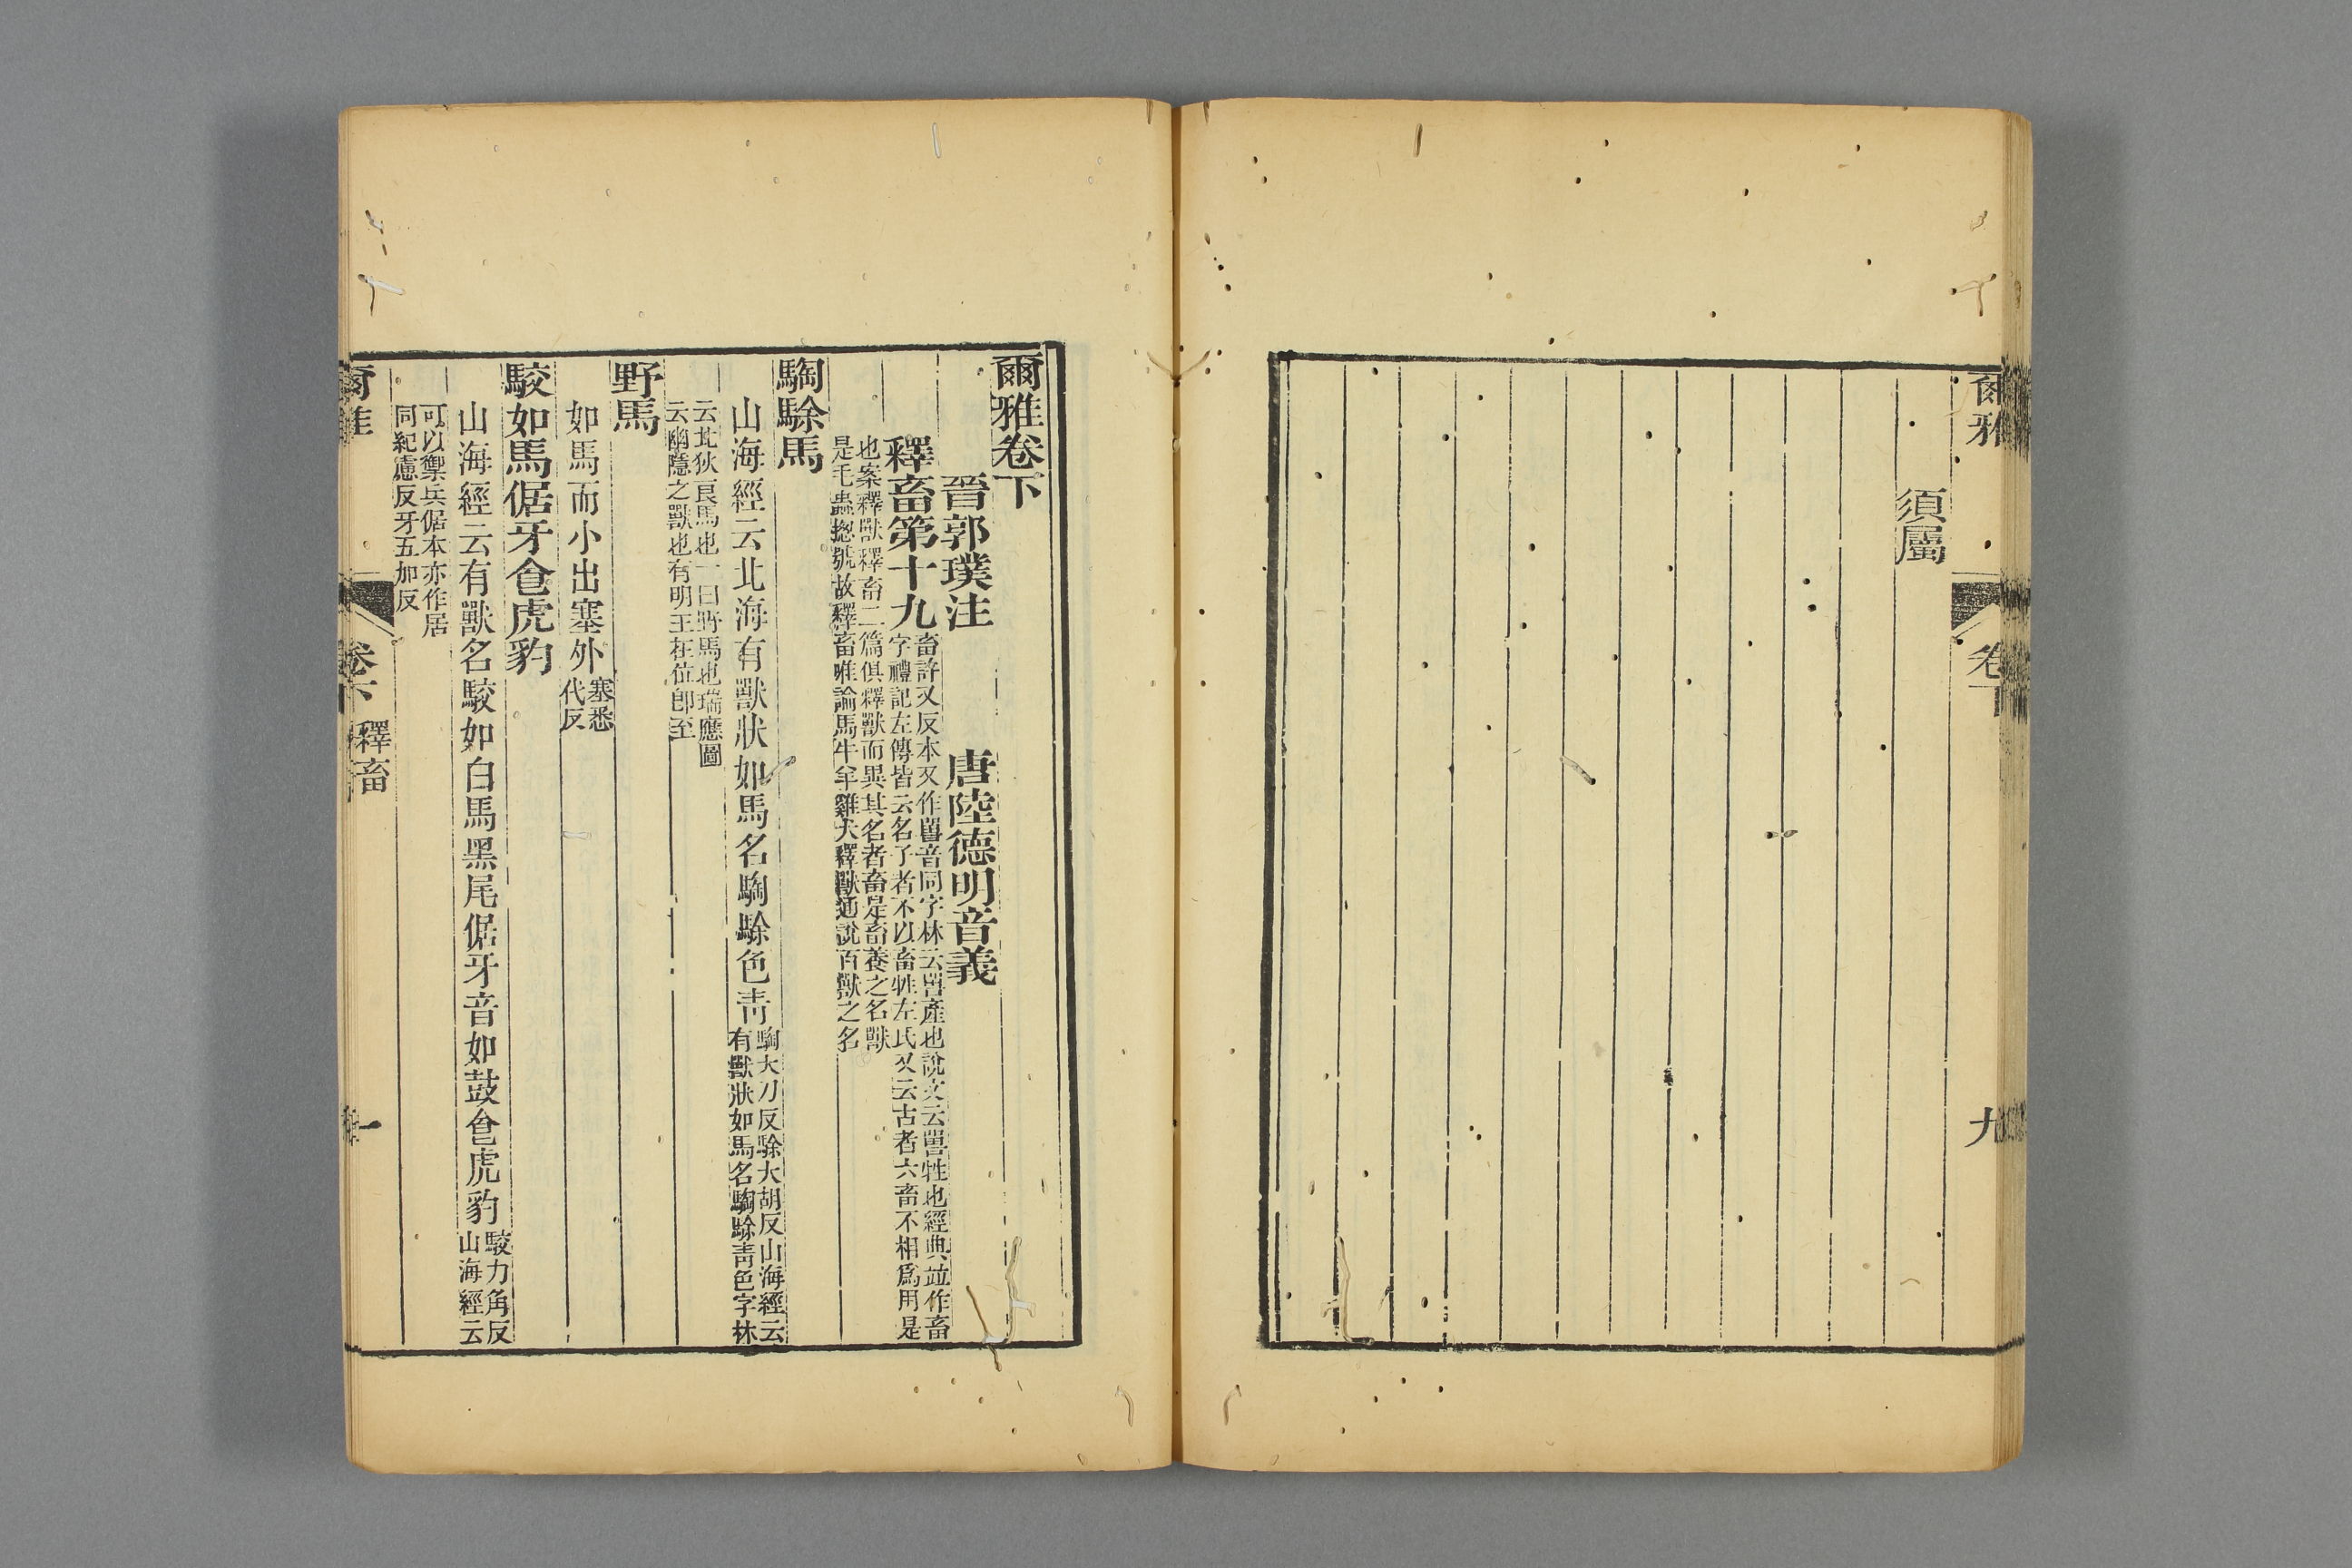 爾雅
卷下
九
須屬
爾雅卷下
晉郭璞注　唐陸德明音義
釋畜第十九
畜許又反本又作嘼音同字林云嘼產也說文云嘼牲也經典竝作畜
字禮記左傳皆云名子者不以畜牲左氏又云古者六畜不相爲用是
也案釋獸釋畜二篇俱釋獸而異其名者畜是畜養之名獸
是毛蟲揔號故釋畜唯論馬牛羊雞犬釋獸通說百獸之名
騊駼馬
山海經云北海有獸狀如馬名騊駼色靑
騊大刀反駼大胡反山海經云
有獸狀如馬名騊駼靑色字林
云北狄良馬也一曰野馬也瑞應圖
云幽隱之獸也有明王在位卽至
野馬
如馬而小出塞外
塞悉
代反
駮如馬倨牙食虎豹
山海經云有獸名駮如白馬黑尾倨牙音如鼓食虎豹
駮力角反
山海經云
可以禦兵倨本亦作居
同紀慮反牙五加反
爾雅
卷下
釋畜
一